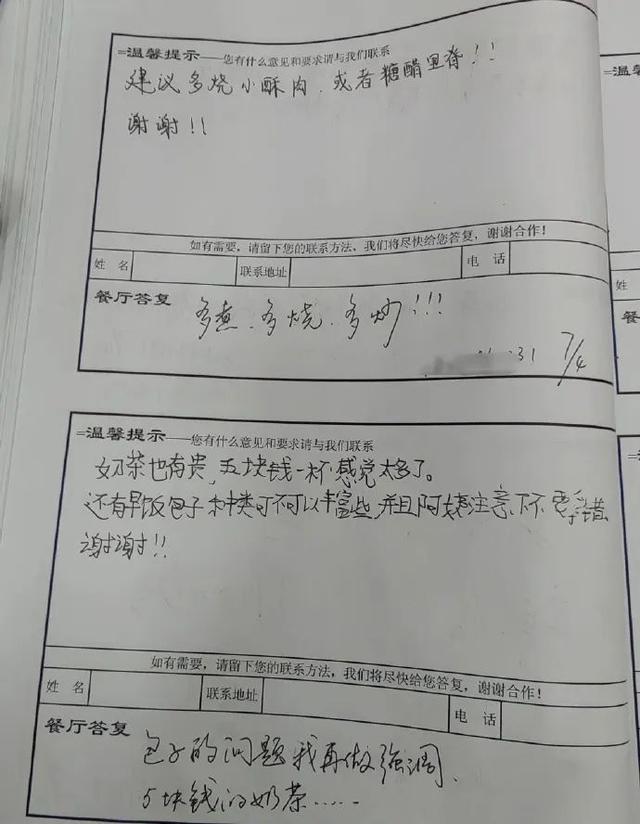 =温馨提示——您有什么意见和要求请与我们联系
建议多烧小酥肉.或者糖醋里脊!!
谢谢!!
如有需要，请留下您的联系方法，我们将尽快给您答复，谢谢合作！
姓 名 联系地址 电 话
餐厅答复
多煮.多烧.多炒!!!
31 7/4
=温馨提示——您有什么意见和要求请与我们联系
奶茶也有贵,五块钱一杯感觉太多了。
还有早饭包子种类可不可以丰富些,并且阿姨注意下不要手错
谢谢!!
如有需要，请留下您的联系方法，我们将尽快给您答复，谢谢合作！
姓 名 联系地址 电 话
餐厅答复
包子的问题我再做强调.
5块钱的奶茶......
=温馨
姓
餐厅
=温馨
姓
餐厅